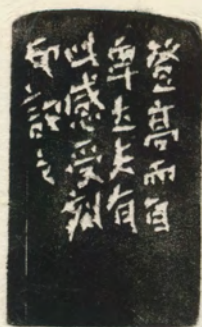 登高而自
卑士夫有
此感受刻
記之